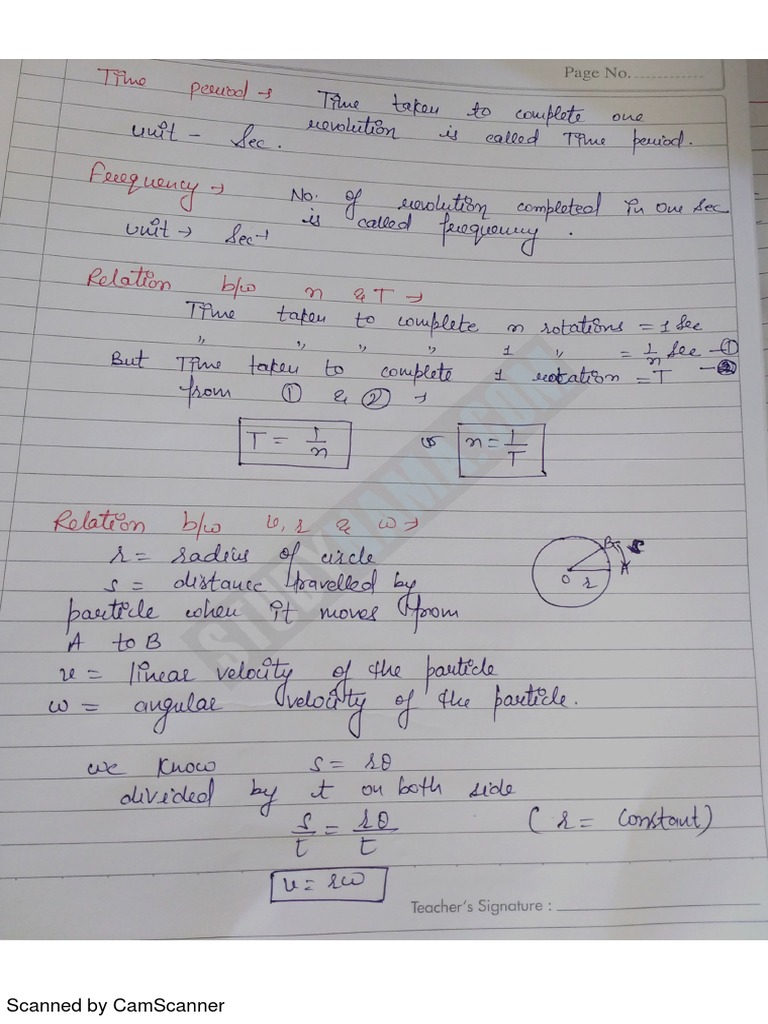 Page No.
Time period → Time taken to complete one
revolution is called Time period.
unit - Sec.
Frequency → No. of revolution completed in one sec
is called frequency.
unit → Sec-1
Relation b/w n & T →
Time taken to complete n rotations = 1 Sec
" " " " 1 " = 1/n Sec -①
But Time taken to complete 1 rotation = T -②
from ① & ② →
T = 1/n or n = 1/T
Relation b/w v, r & ω →
r = radius of circle
s = distance travelled by
particle when it moves from
A to B
v = linear velocity of the particle
ω = angular velocity of the particle.
B s
A
O r
we know s = rθ
divided by t on both side
s/t = rθ/t (r = constant)
v = rω
Teacher's Signature :
STUDYNAMA.COM
Scanned by CamScanner